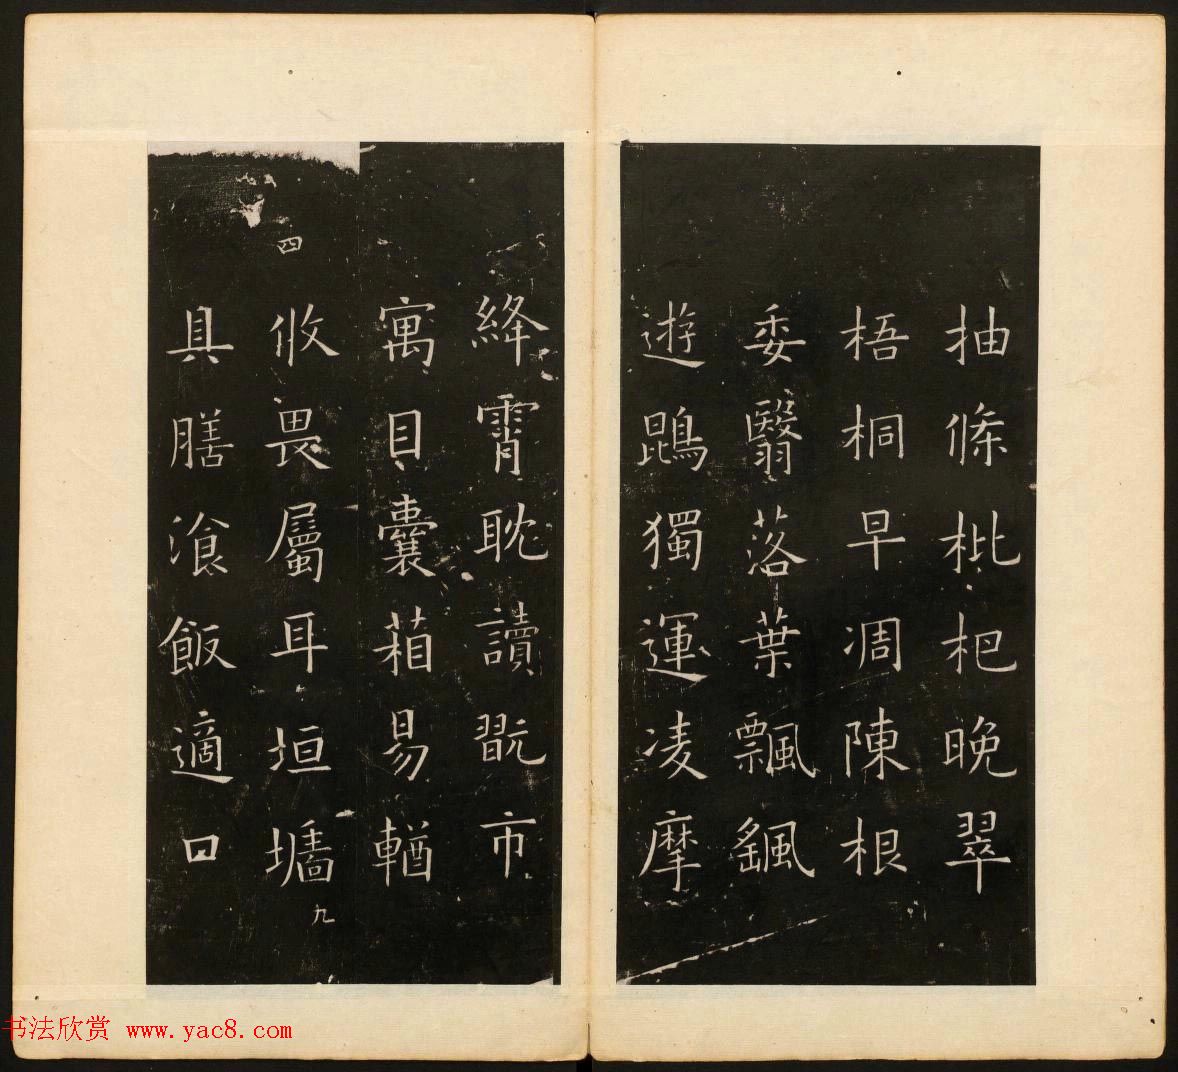 抽條枇杷晚翠
梧桐早凋陳根
委翳落葉飄颻
遊鵾獨運凌摩
絳霄耽讀翫市
寓目囊葙易輶
攸畏屬耳垣墻
具膳湌飯適口
四
九
书法欣赏 www.yac8.com